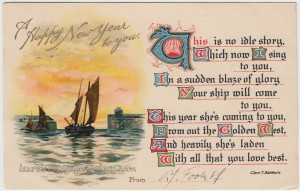 A Happy New Year
to you!
This is no idle story,
Which now I sing
to you,
In a sudden blaze of glory
Your ship will come
to you.
This year she's coming to you,
From out the Golden West,
And heavily she's laden
With all that you love best.
Clare T. Baldwin.
From